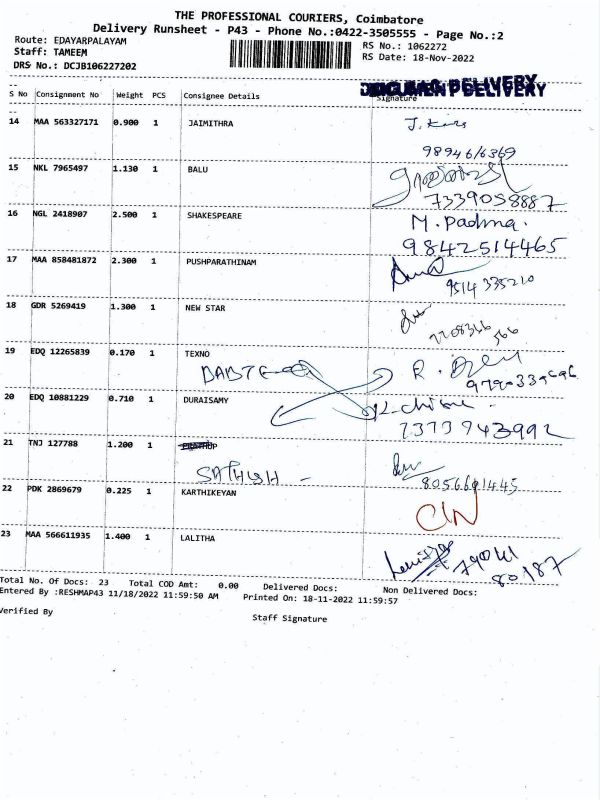 THE PROFESSIONAL COURIERS, Coimbatore
Delivery Runsheet - P43 - Phone No.:0422-3505555 - Page No.:2
Route: EDAYARPALAYAM
RS No.: 1062272
Staff: TAMEEM
RS Date: 18-Nov-2022
DRS No.: DCJB106227202
S No Consignment No Weight PCS Consignee Details Signature
DELIVERY
14 MAA 563327171 0.900 1 JAIMITHRA
9894616369
15 NKL 7965497 1.130 1 BALU
7339058887
16 NGL 2418907 2.500 1 SHAKESPEARE M. Padma.
9842514465
17 MAA 858481872 2.300 1 PUSHPARATHINAM
9514335210
18 GDR 5269419 1.300 1 NEW STAR
19 EDQ 12265839 0.170 1 TEXNO
20 EDQ 10881229 0.710 1 DURAISAMY
7373943992
21 TNJ 127788 1.200 1
SATHISH -
8056691445
22 PDK 2869679 0.225 1 KARTHIKEYAN
23 MAA 566611935 1.400 1 LALITHA
Total No. Of Docs: 23 Total COD Amt: 0.00 Delivered Docs: Non Delivered Docs:
Entered By :RESHMAP43 11/18/2022 11:59:50 AM Printed On: 18-11-2022 11:59:57
Verified By
Staff Signature